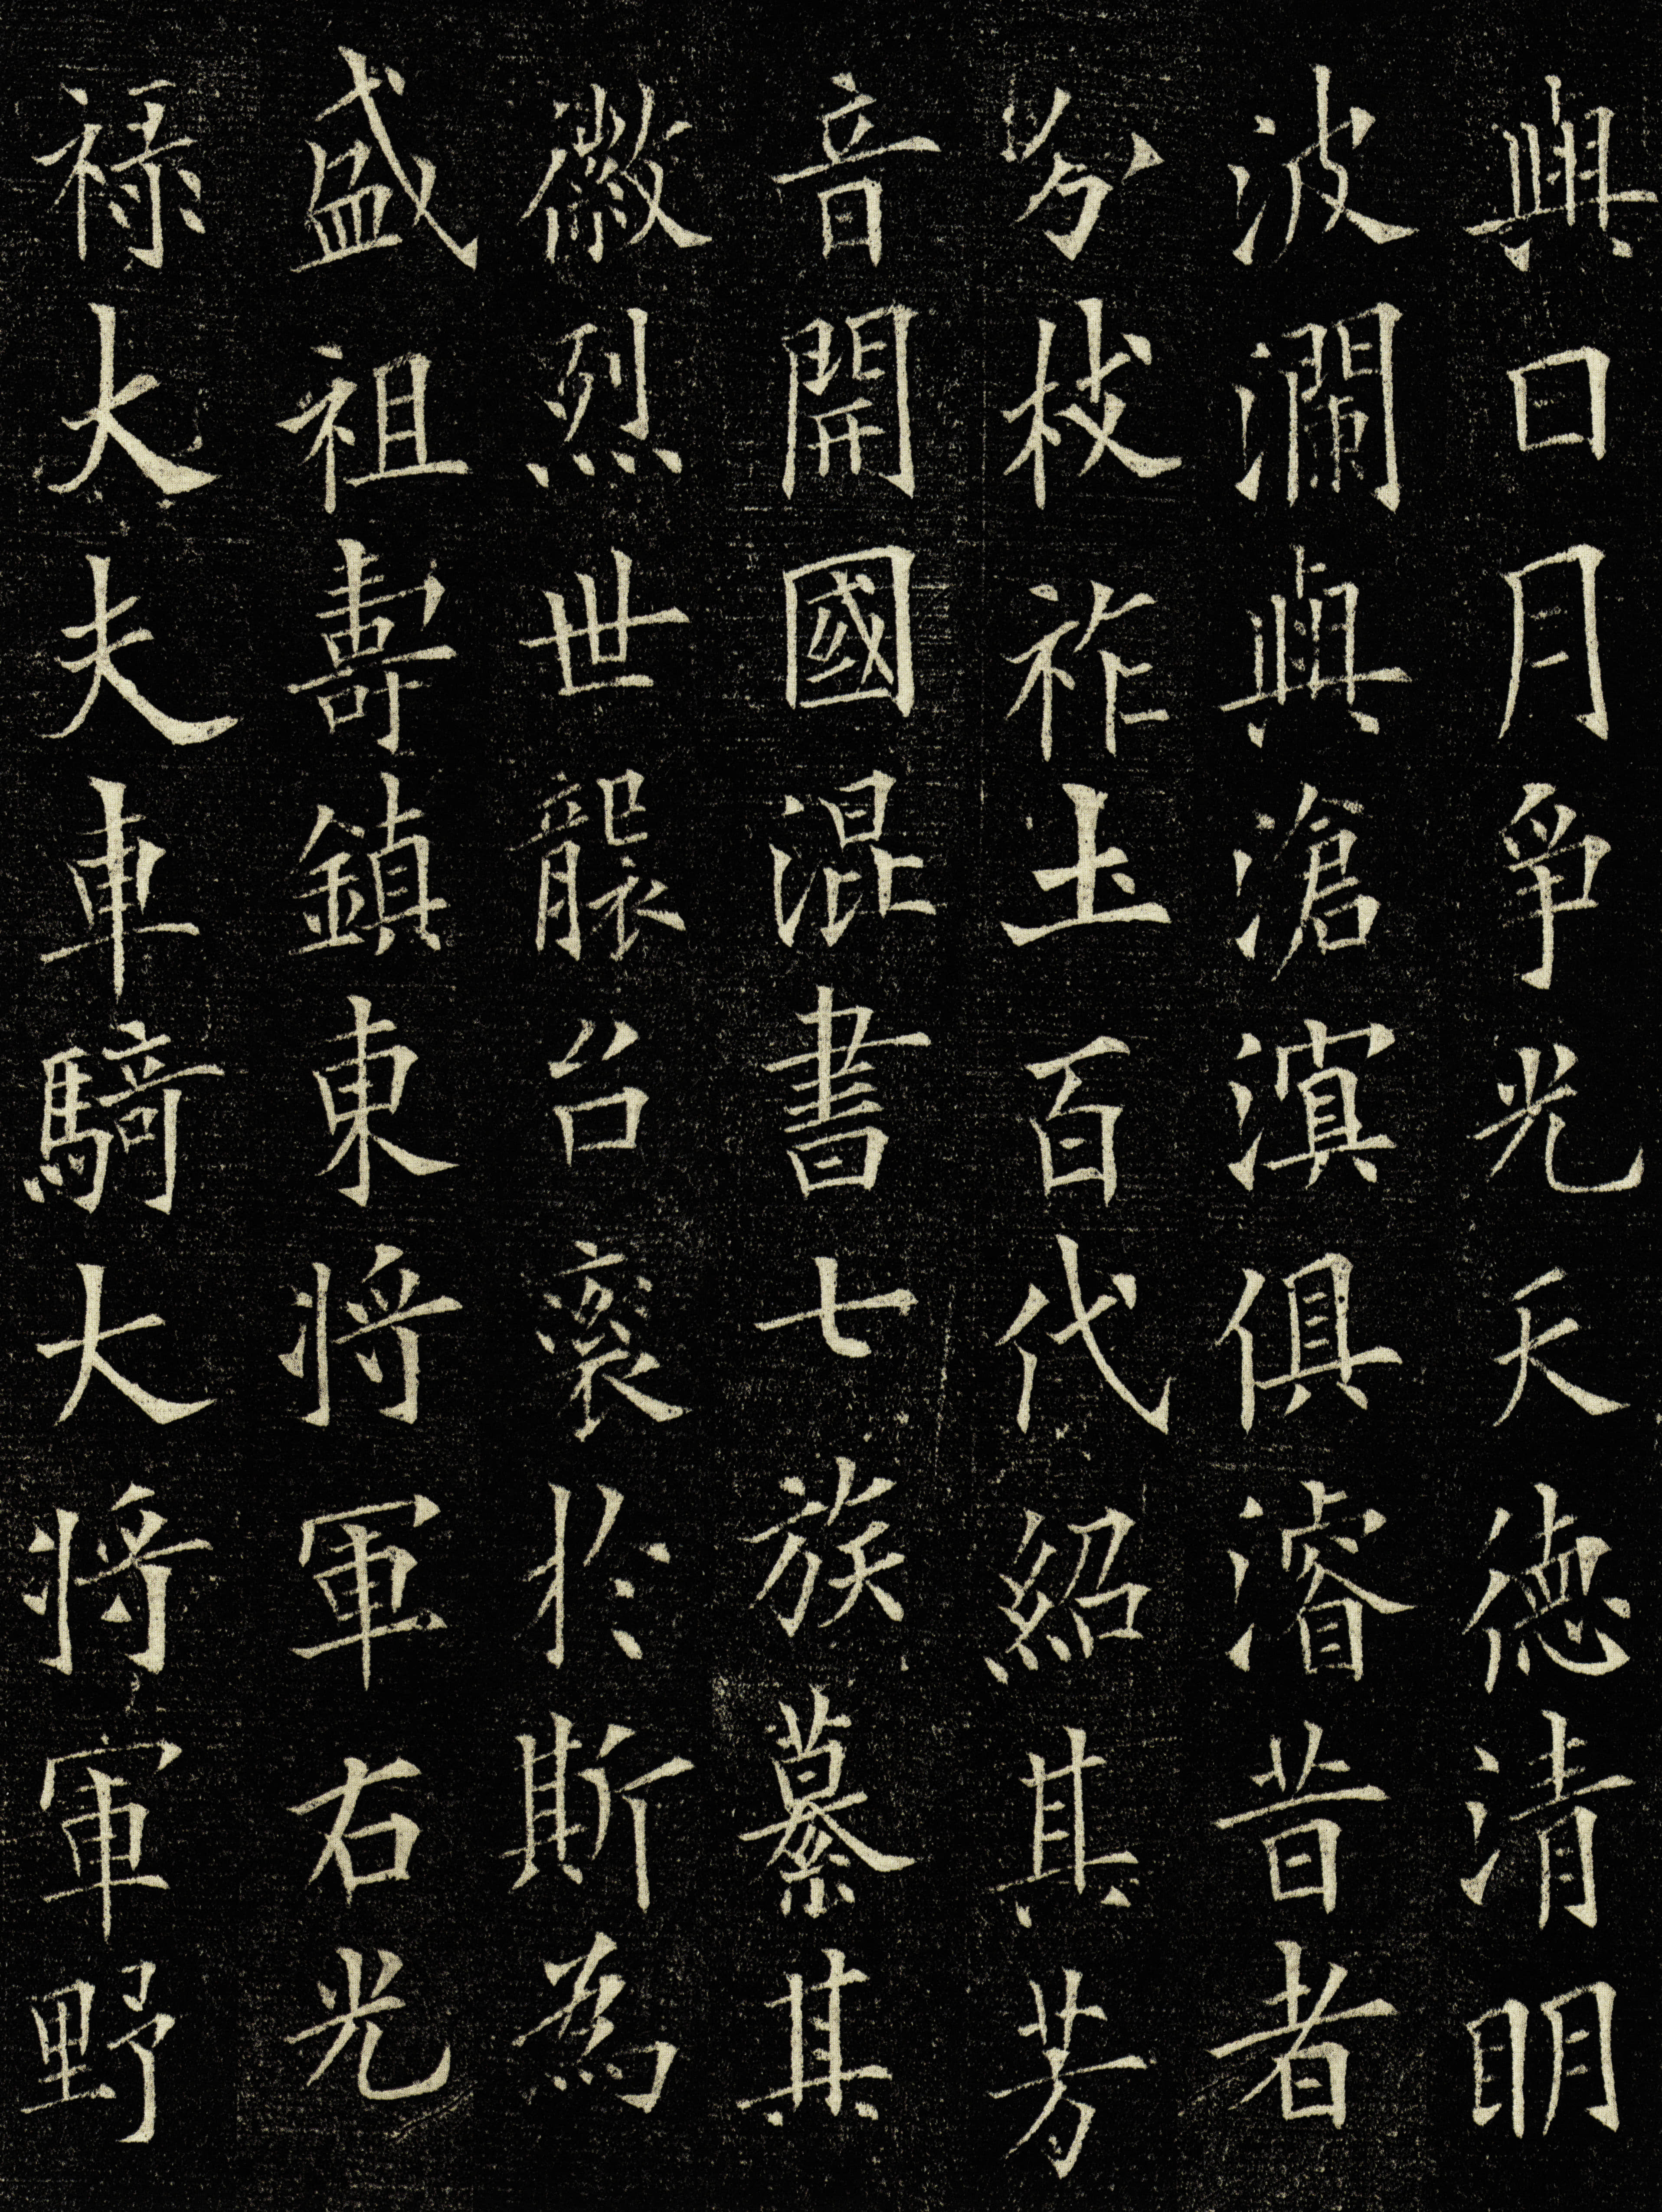 與日月爭光天德清明
波瀾與滄溟俱濬昔者
分枝祚土百代紹其芳
音開國混書七族纂其
徽烈世襲台衮於斯為
盛祖壽鎮東將軍右光
祿大夫車騎大將軍野